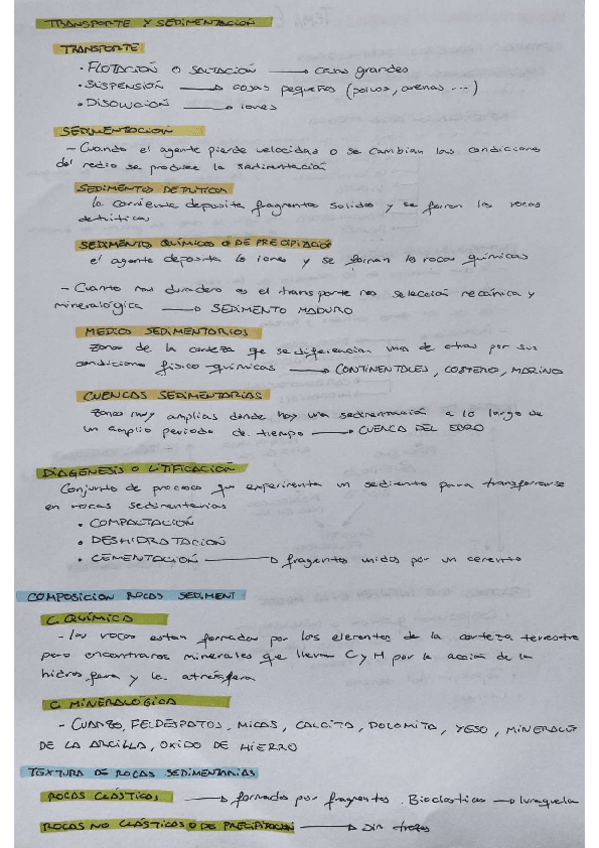 TRANSPORTE Y SEDIMENTACIÓN
TRANSPORTE
• FLOTACIÓN O SALTACIÓN → cosas grandes
• SUSPENSIÓN → cosas pequeñas (polvos, arenas ...)
• DISOLUCIÓN → iones
SEDIMENTACIÓN
- Cuando el agente pierde velocidad o se cambian las condiciones
del medio se produce la sedimentación
SEDIMENTOS DETRÍTICOS
la corriente deposita fragmentos solidos y se forman las rocas
detríticas
SEDIMENTO QUÍMICOS O DE PRECIPITACIÓ
el agente deposita lo iones y se forman la rocas químicas
- Cuanto mas duradero es el transporte mas selección mecánica y
mineralógica → SEDIMENTO MADURO
MEDIOS SEDIMENTARIOS
Zonas de la corteza que se diferencian unas de otras por sus
condiciones físico-químicas → CONTINENTALES, COSTERO, MARINO
CUENCAS SEDIMENTARIAS
Zonas muy amplias donde hay una sedimentación a lo largo de
un amplio periodo de tiempo → CUENCA DEL EBRO
DIAGENESIS O LITIFICACIÓN
Conjunto de procesos que experimenta un sedimento para transformarse
en rocas sedimentarias
• COMPACTACIÓN
• DESHIDRATACIÓN
• CEMENTACIÓN → fragmentos unidos por un cemento
COMPOSICION ROCAS SEDIMENT
C. QUÍMICA
- las rocas estan formadas por los elementos de la corteza terrestre
pero encontramos minerales que llevan C y H por la acción de la
hidrosfera y la atmósfera
C MINERALÓGICA
- CUARZO, FELDESPATOS, MICAS, CALCITA, DOLOMITA, YESO, MINERALES
DE LA ARCILLA, OXIDO DE HIERRO
TEXTURA DE ROCAS SEDIMENTARIAS
ROCAS CLÁSTICAS → formadas por fragmentos. Bioclasticas → lumaquela
ROCAS NO CLÁSTICAS O DE PRECIPITACION → sin trozos